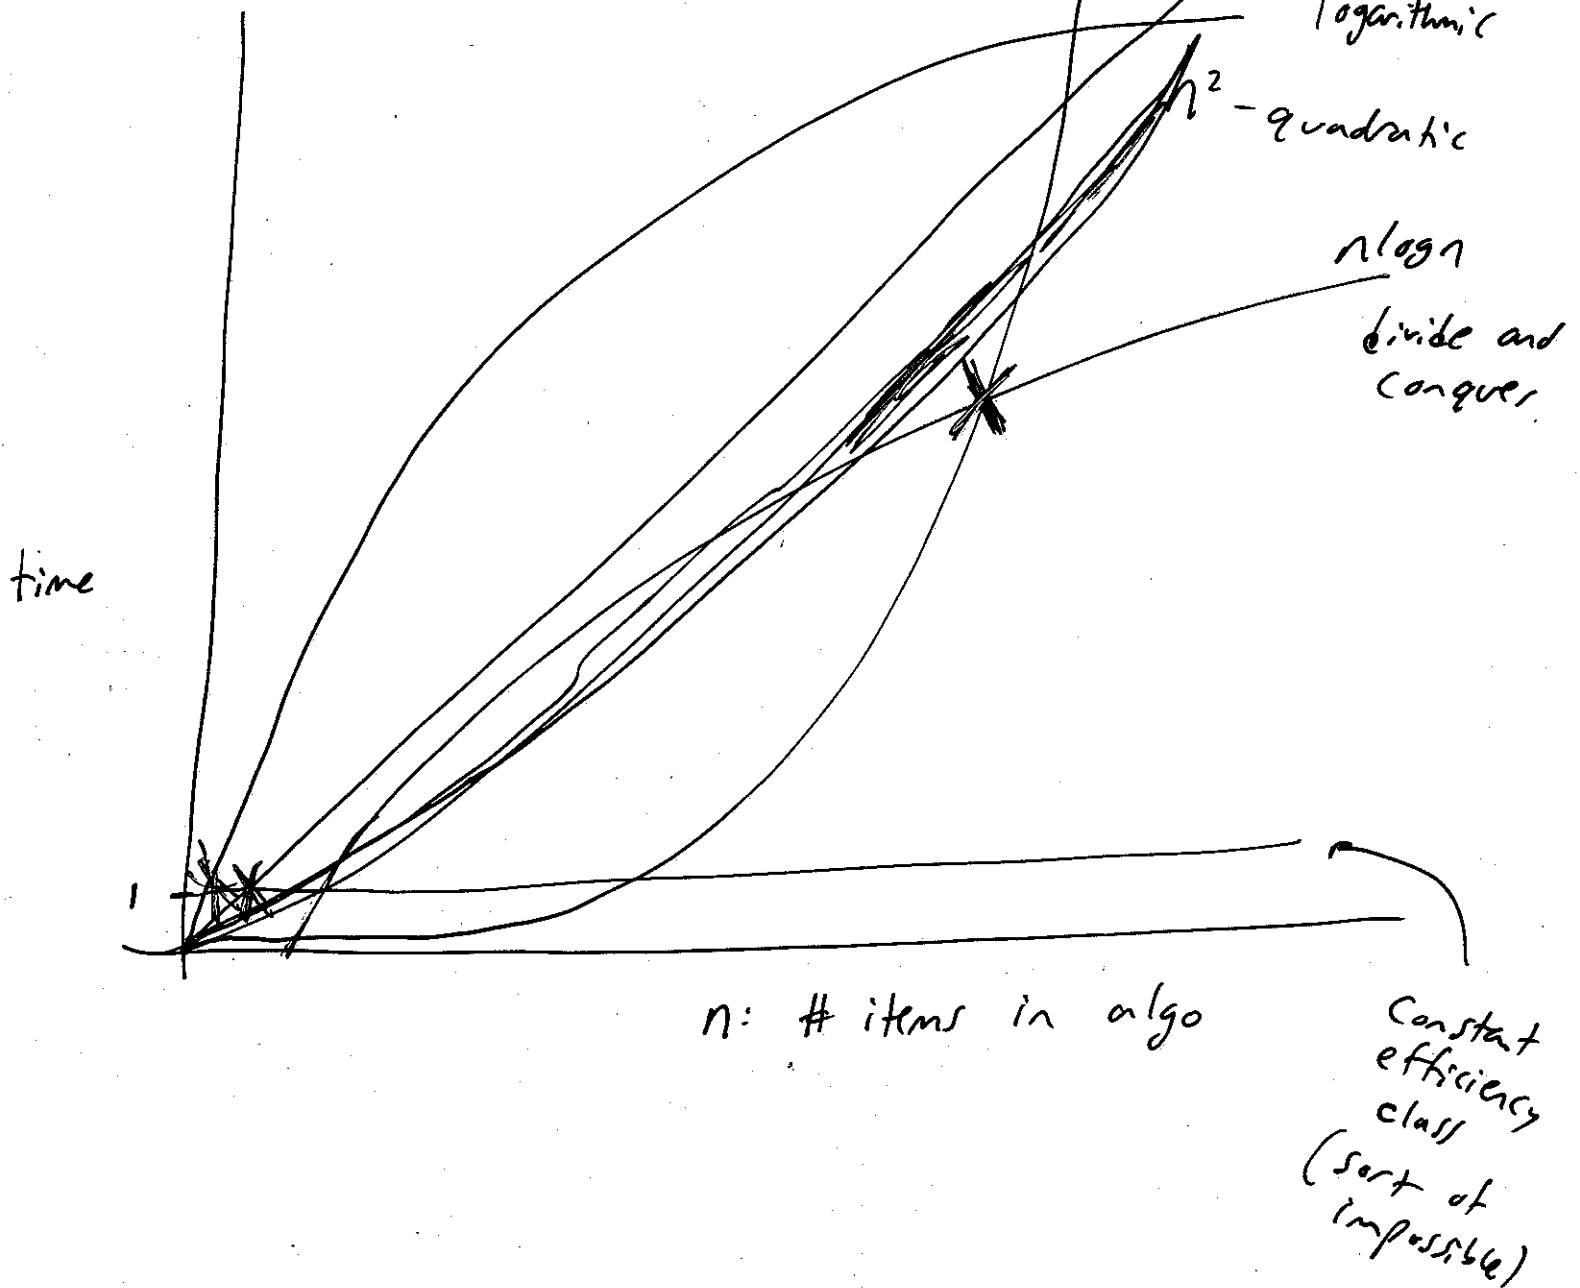 logarithmic
n² - quadratic
nlogn
divide and
conquer
time
1
n: # items in algo
Constant
efficiency
class
(sort of
impossible)